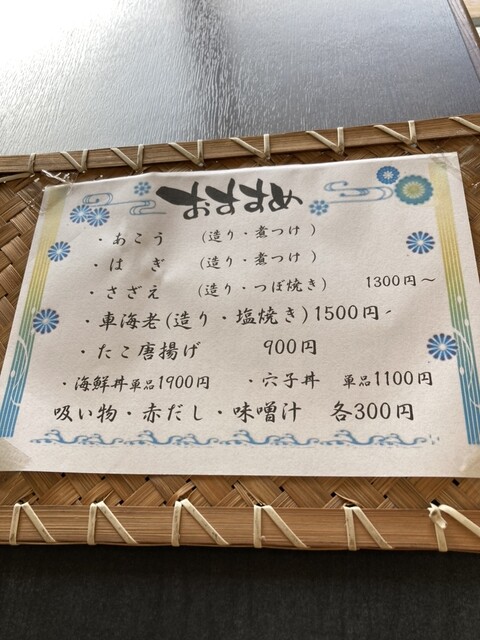 おすすめ
・あこう (造り・煮つけ)
・はぎ (造り・煮つけ)
・さざえ (造り・つぼ焼き) 1300円～
・車海老(造り・塩焼き)1500円~
・たこ唐揚げ 900円
・海鮮丼単品1900円 ・穴子丼 単品1100円
吸い物・赤だし・味噌汁 各300円